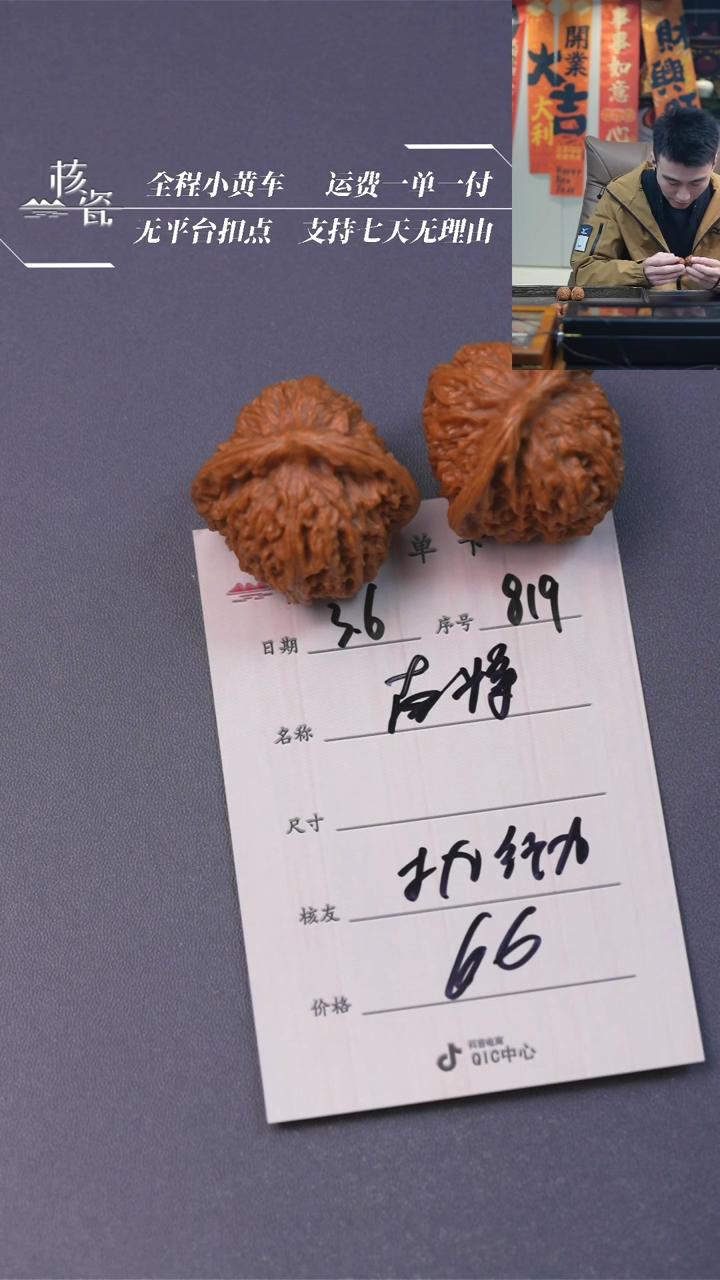 核瓷
全程小黄车 运费一单一付
无平台扣点 支持七天无理由
開業
大吉
大利
事事如意
心
財興旺
单卡
日期 3.6 序号 819
名称 南将
尺寸
核友
价格 66
抖音电商
QIC中心